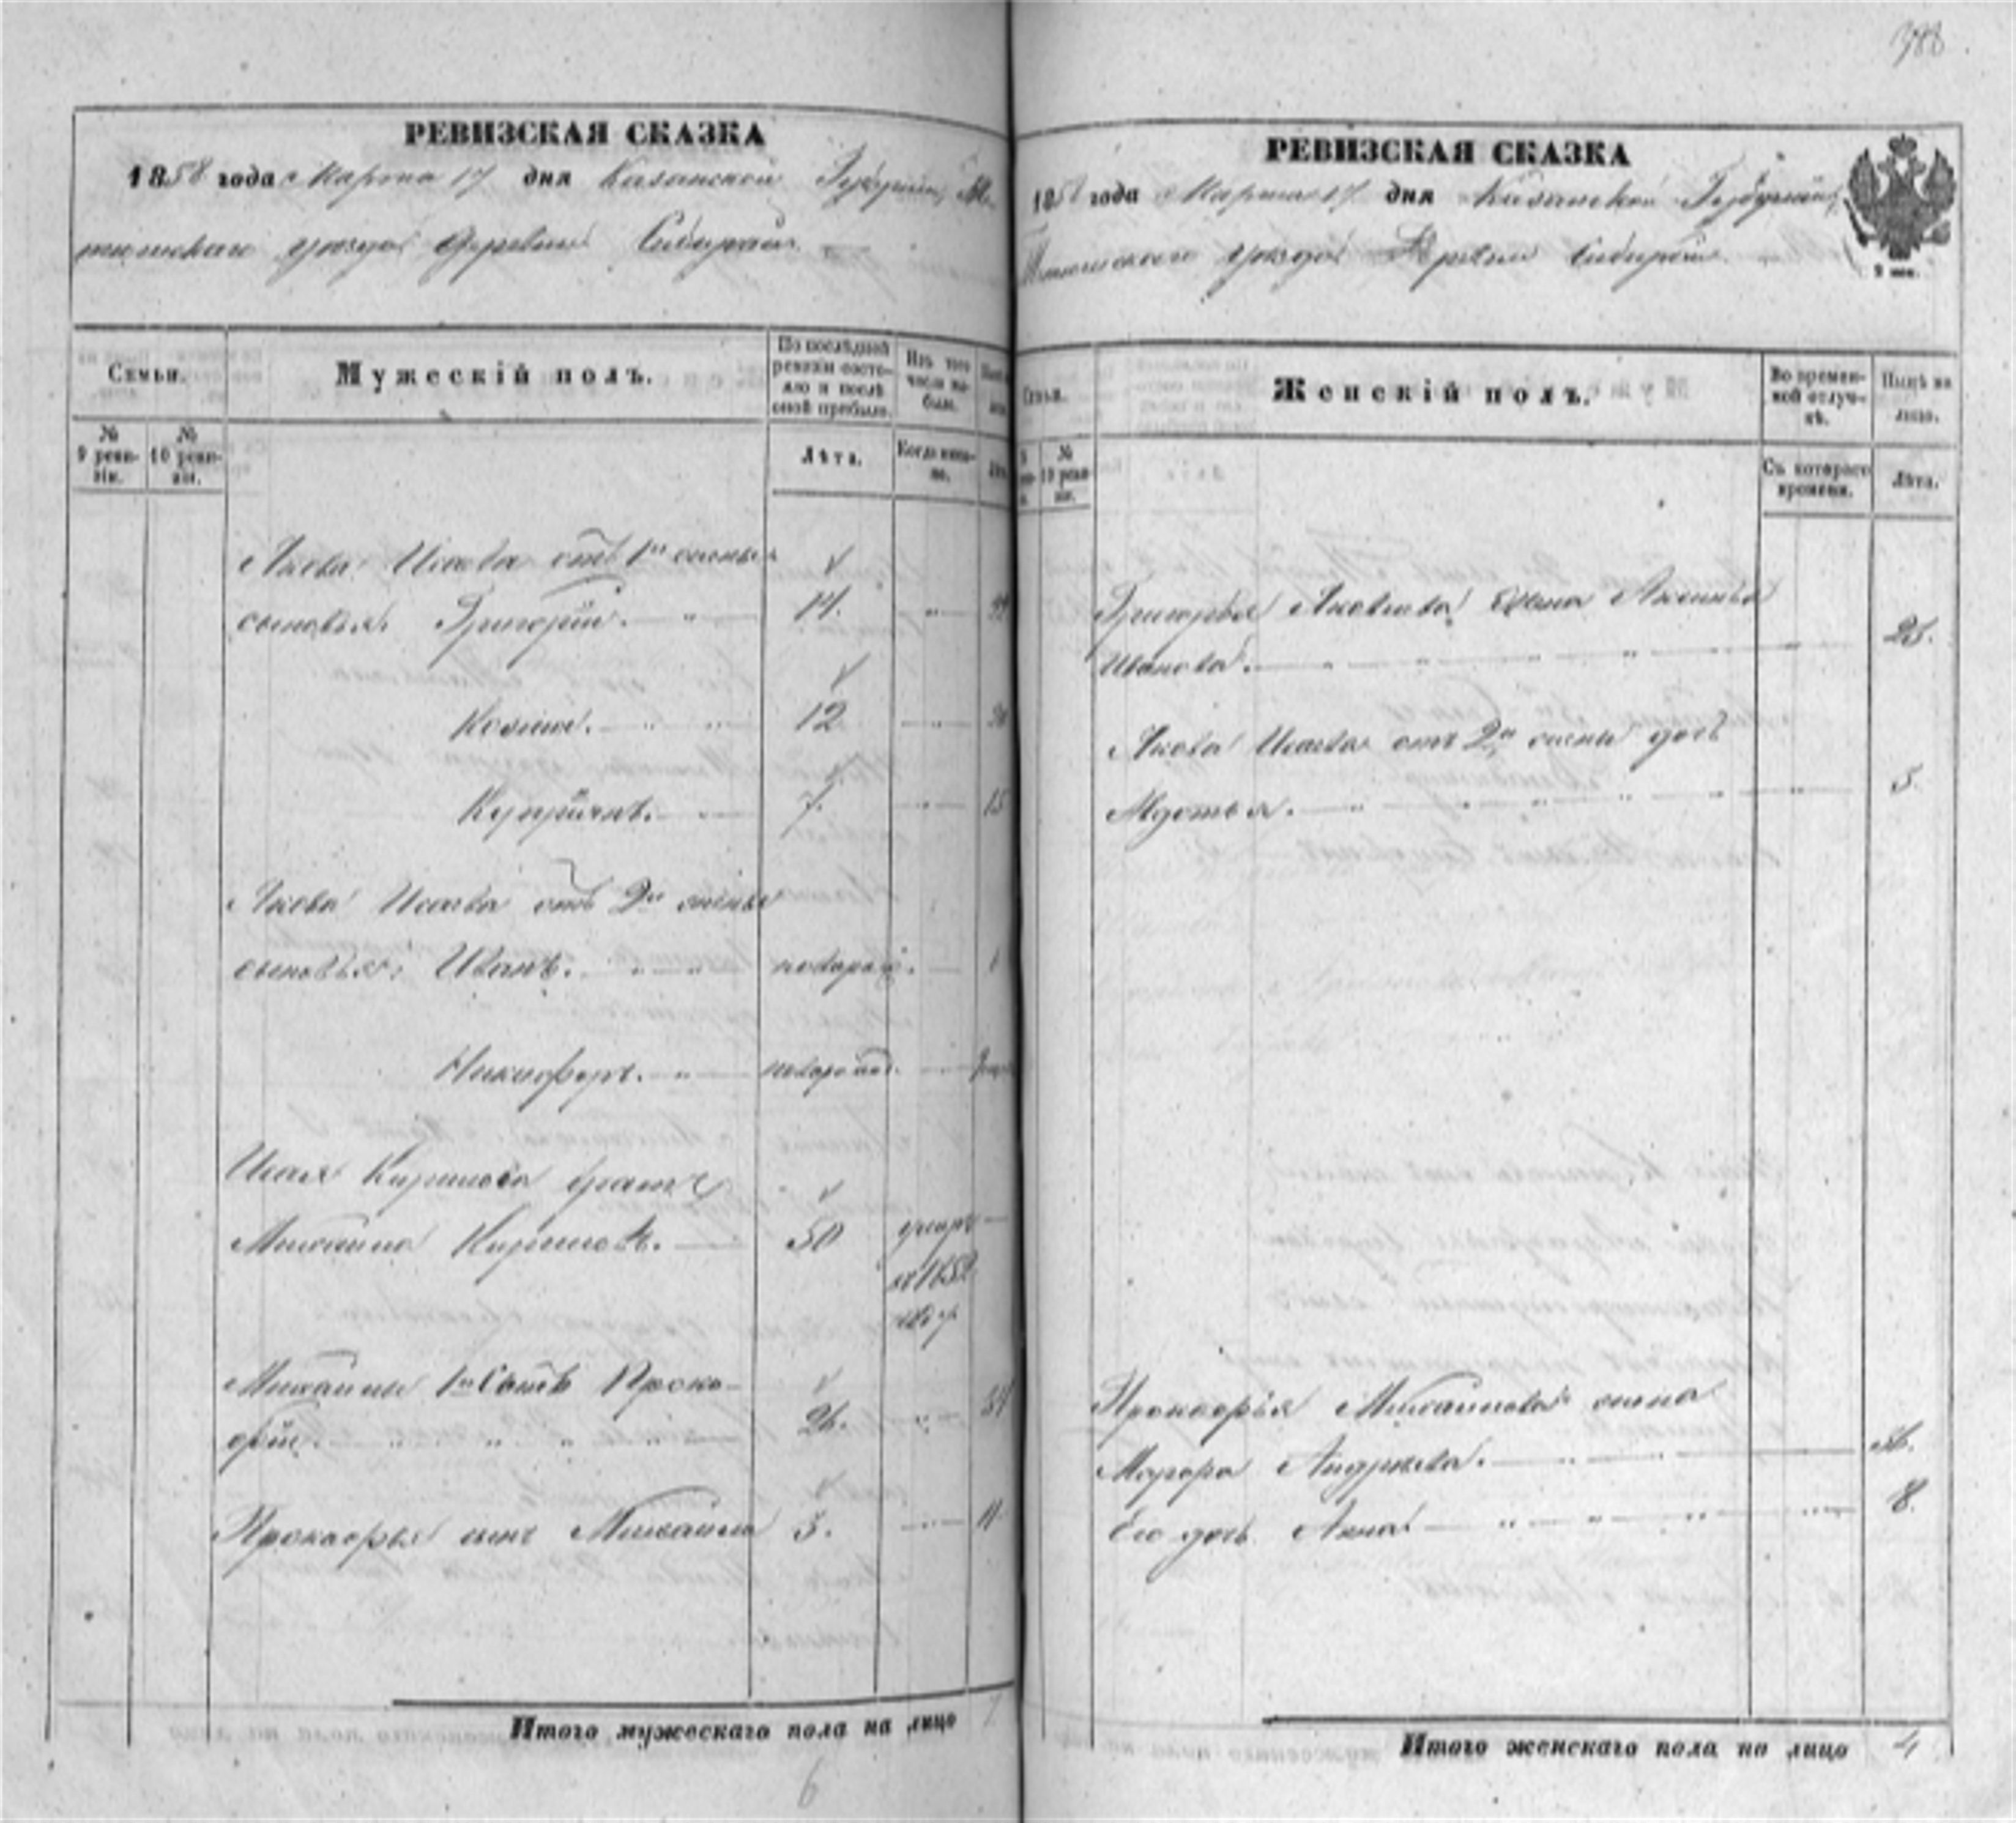 388
РЕВИЗСКАЯ СКАЗКА
1858 года Марта 17 дня Казанской Губернии Те-
тюшскаго уезда Деревни
Семьи.
Мужескій полъ.
По послѣдней ревизіи состояло и послѣ оной прибыло.
Изъ того числа выбыло.
№ 9 ревизіи.
№ 10 ревизіи.
Лѣта.
Когда именно.
Якова Исаева отъ 1й жены
сыновья: Григорій. 14.
Козма. 12
Купріянъ. 7. 15
Якова Исаева отъ 2й жены
сыновья: Иванъ. новорож. 1
Никифоръ. новорожд.
Исая Кирилова братъ
Михайла Кириловъ. 50 умеръ
въ 1852
году
Михайлы 1й сынъ Проко-
фій. 26.
Прокофья сынъ Михайла 3. 11
Итого мужескаго пола на лицо 7
6
РЕВИЗСКАЯ СКАЗКА
1858 года Марта 17 дня Казанской Губерніи
Тетюшскаго уезда Деревни
Семьи.
Женскій полъ.
Во временной отлучкѣ.
Нынѣ на лицо.
№ 10 ревизіи.
Съ котораго времени.
Лѣта.
Григорья Яковлева жена Аксинья
Иванова.
Якова Исаева отъ 2й жены дочь
Авдотья. 5.
Прокофья Михайлова жена
Андреева. 36.
Его дочь Анна. 8.
Итого женскаго пола на лицо 4